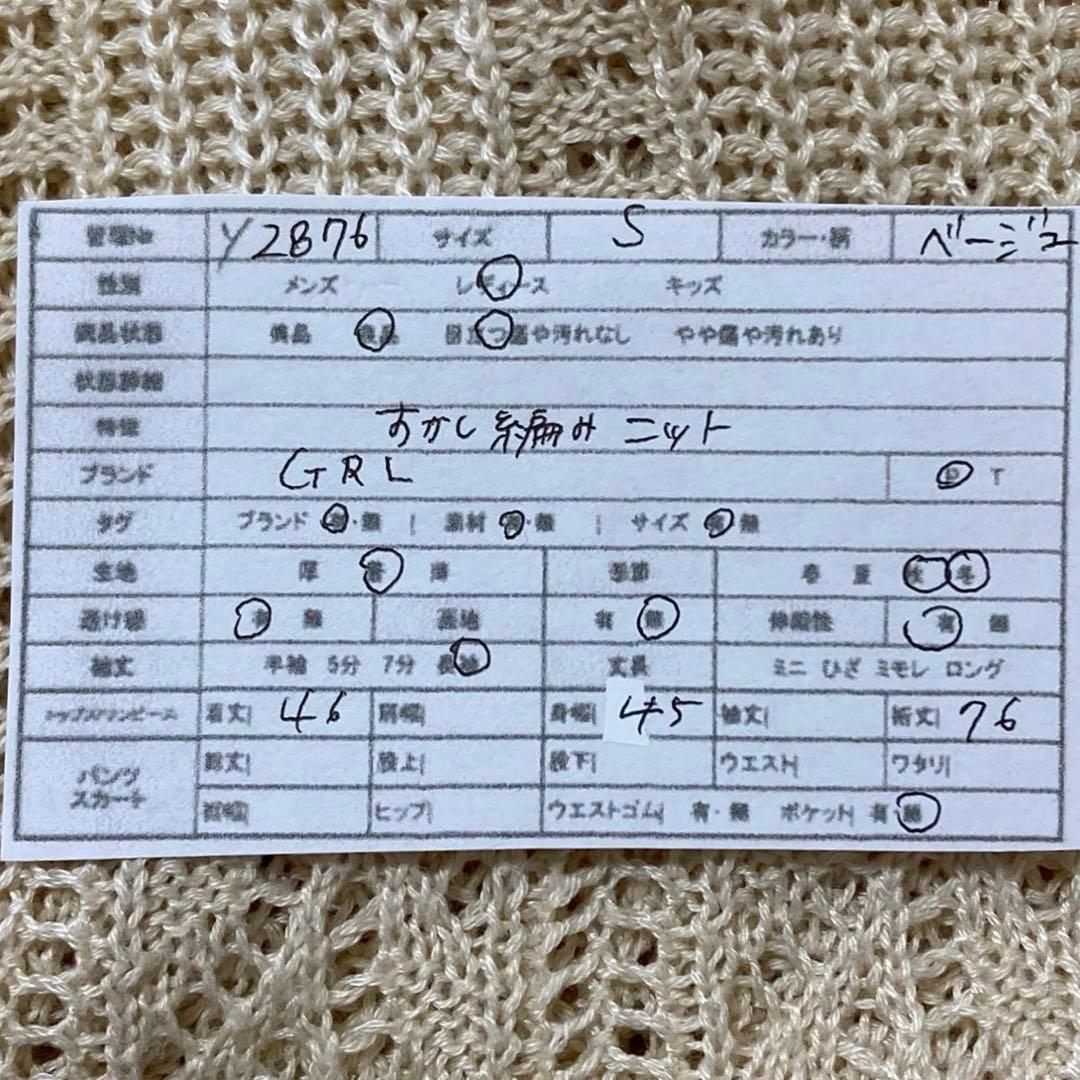 管理No Y2876 サイズ S カラー・柄 ベージュ
性別 メンズ レディース キッズ
商品状態 美品 良品 目立つ傷や汚れなし やや傷や汚れあり
状態詳細
特徴 すかし編み ニット
ブランド GRL P T
タグ ブランド 有・無 | 素材 有・無 | サイズ 有 無
生地 厚 普 薄 季節 春 夏 秋 冬
透け感 有 無 裏地 有 無 伸縮性 有 無
袖丈 半袖 5分 7分 長袖 丈長 ミニ ひざ ミモレ ロング
トップス/ワンピース 着丈| 46 肩幅| 身幅| 45 袖丈| 裄丈| 76
パンツ スカート 総丈| 股上| 股下| ウエスト| ワタリ|
裾幅| ヒップ| ウエストゴム| 有・無 ポケット| 有・無